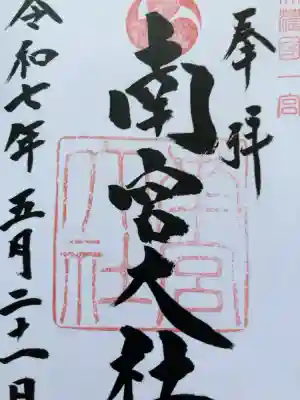 美濃國一宮
奉拝
南宮大社
南宮大社
令和七年五月二十一日